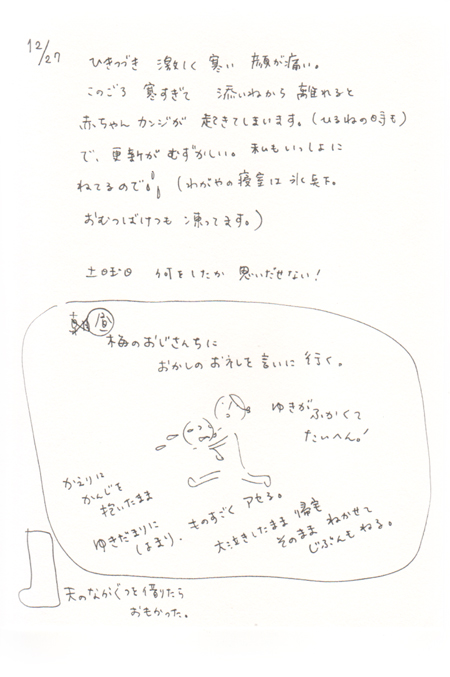 12/27
ひきつづき 激しく 寒い 顔が痛い。
このごろ 寒すぎて 添いねから 離れると
赤ちゃん カンジが 起きてしまいます。(ひるねの時も)
で、更新が むずかしい。私もいっしょに
ねてるので (わがやの寝室は氷点下。
おむつばけつも 凍ってます。)
土曜日 何をしたか 思いだせない!
昼
梅のおじさんちに
おかしのお礼を言いに 行く。
ゆきが
ふかくて
たいへん!
かえりに
かんじを
抱いたまま
ゆきだまりに
はまり、ものすごく アセる。
大泣きしたまま 帰宅
そのまま ねかせて
じぶんも ねる。
夫のながぐつを借りたら
おもかった。